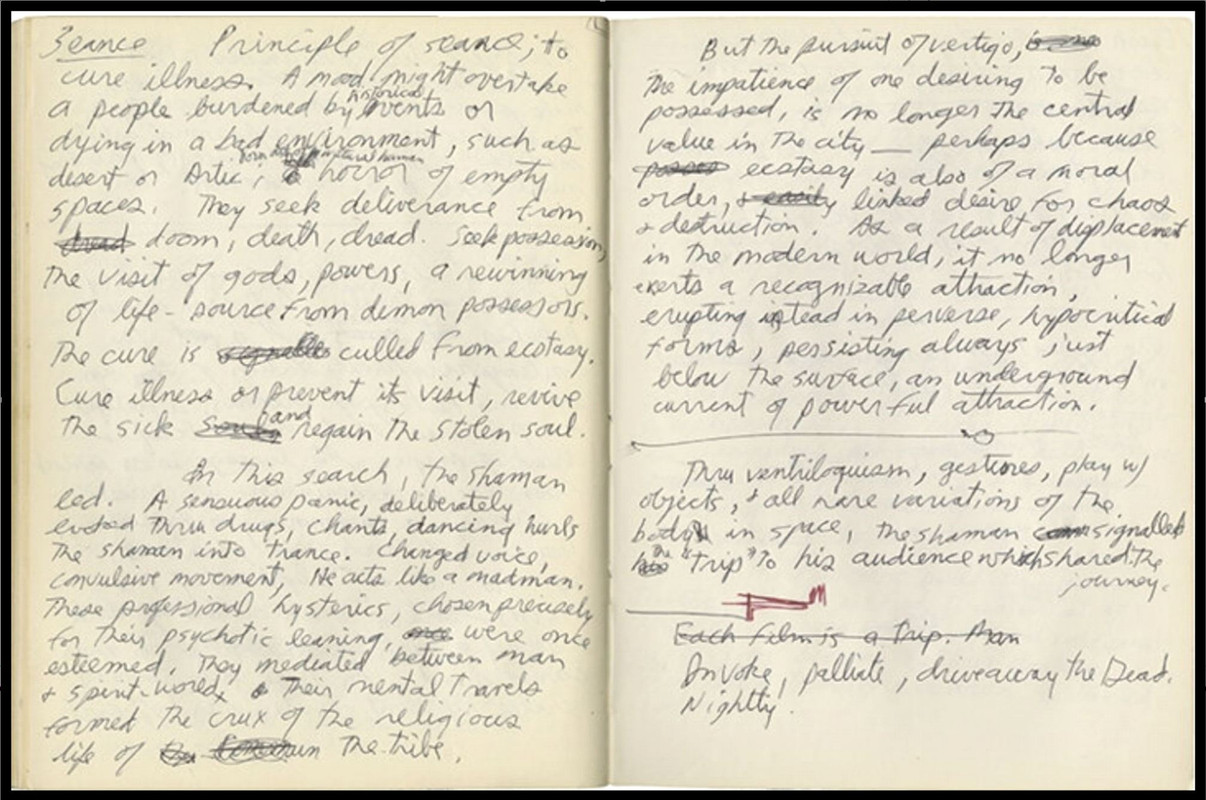 Seance Principle of seance; to
cure illness. A mood might overtake
a people burdened by historical events or
dying in a bad environment, such as
desert or Artic; born out of natural human horror of empty
spaces. They seek deliverance from
dread doom, death, dread. Seek possession,
the visit of gods, powers, a rewinning
of life-source from demon possessors.
The cure is culled from ecstasy.
Cure illness or prevent its visit, revive
the sick and regain the stolen soul.
In this search, the shaman
led. A sensuous panic, deliberately
evoked thru drugs, chants, dancing hurls
the shaman into trance. Changed voice,
convulsive movement, He acts like a madman.
These professional hysterics, chosen precisely
for their psychotic leaning, once were once
esteemed. They mediated between man
& spirit-world. Their mental travels
formed the crux of the religious
life of the tribe.
But the pursuit of vertigo,
the impatience of one desiring to be
possessed, is no longer the central
value in the city — perhaps because
posses ecstasy is also of a moral
order, & easily linked desire for chaos
& destruction. As a result of displacement
in the modern world, it no longer
exerts a recognizable attraction,
erupting instead in perverse, hypocritical
forms, persisting always just
below the surface, an underground
current of powerful attraction.
Thru ventriloquism, gestures, play w/
objects, & all rare variations of the
body in space, the shaman signalled
his the "trip" to his audience which shared the
journey.
Each film is a trip. Man
Invoke, palliate, drive away the Dead.
Nightly.